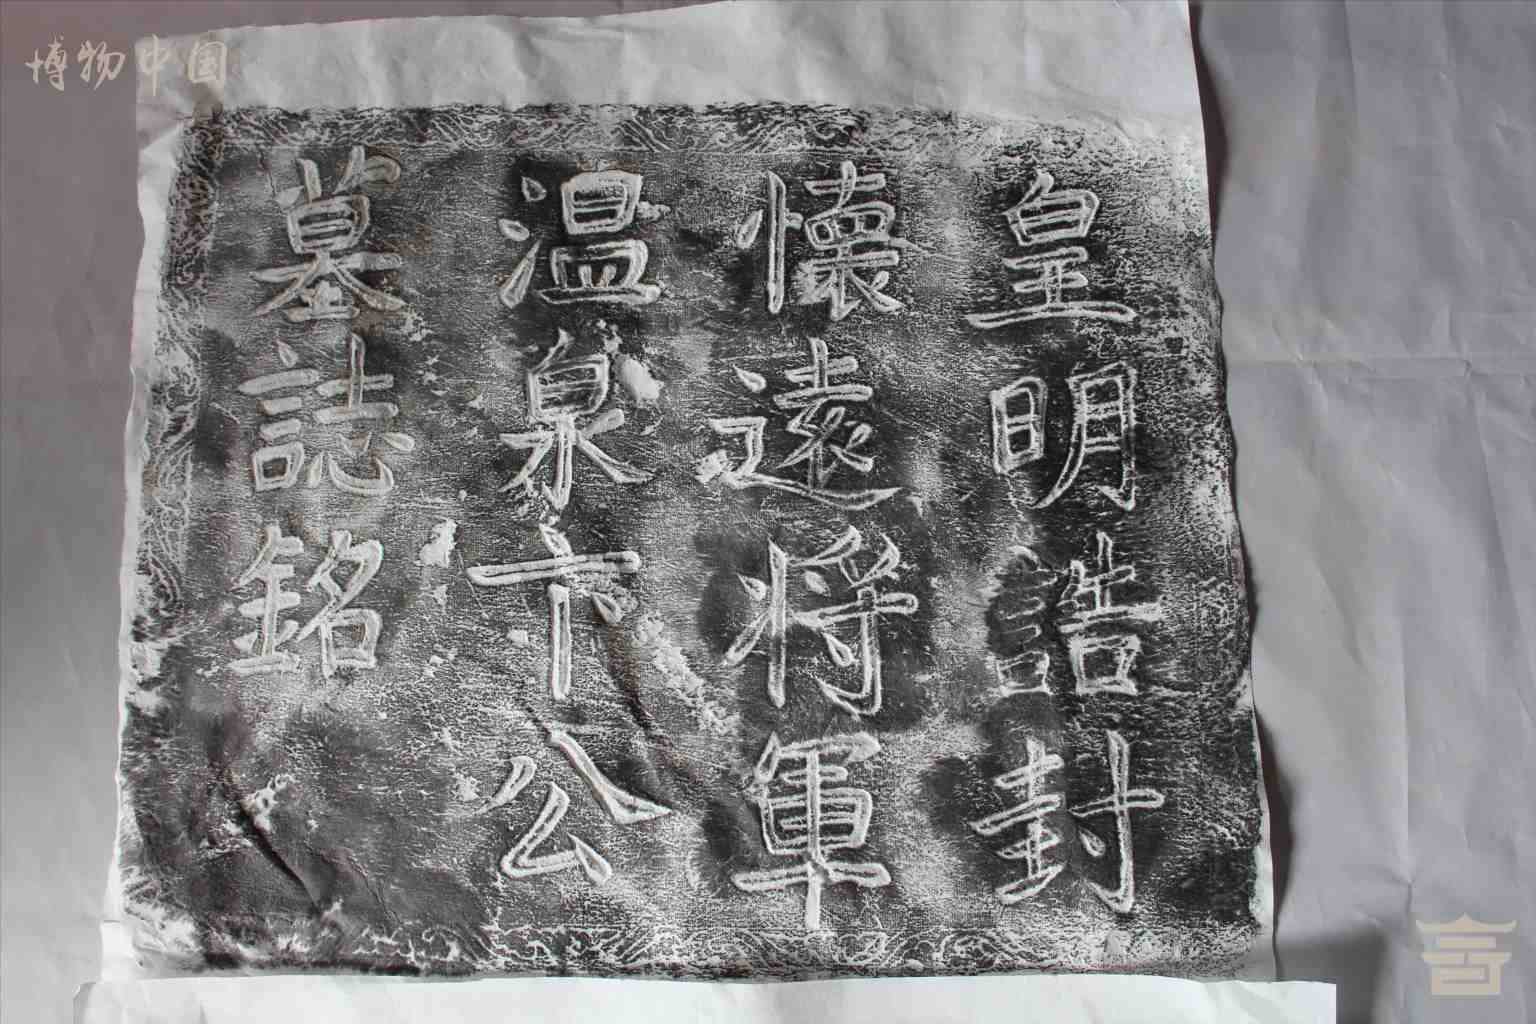 博物中国
皇明誥封
懷遠将軍
温泉卞公
墓誌銘